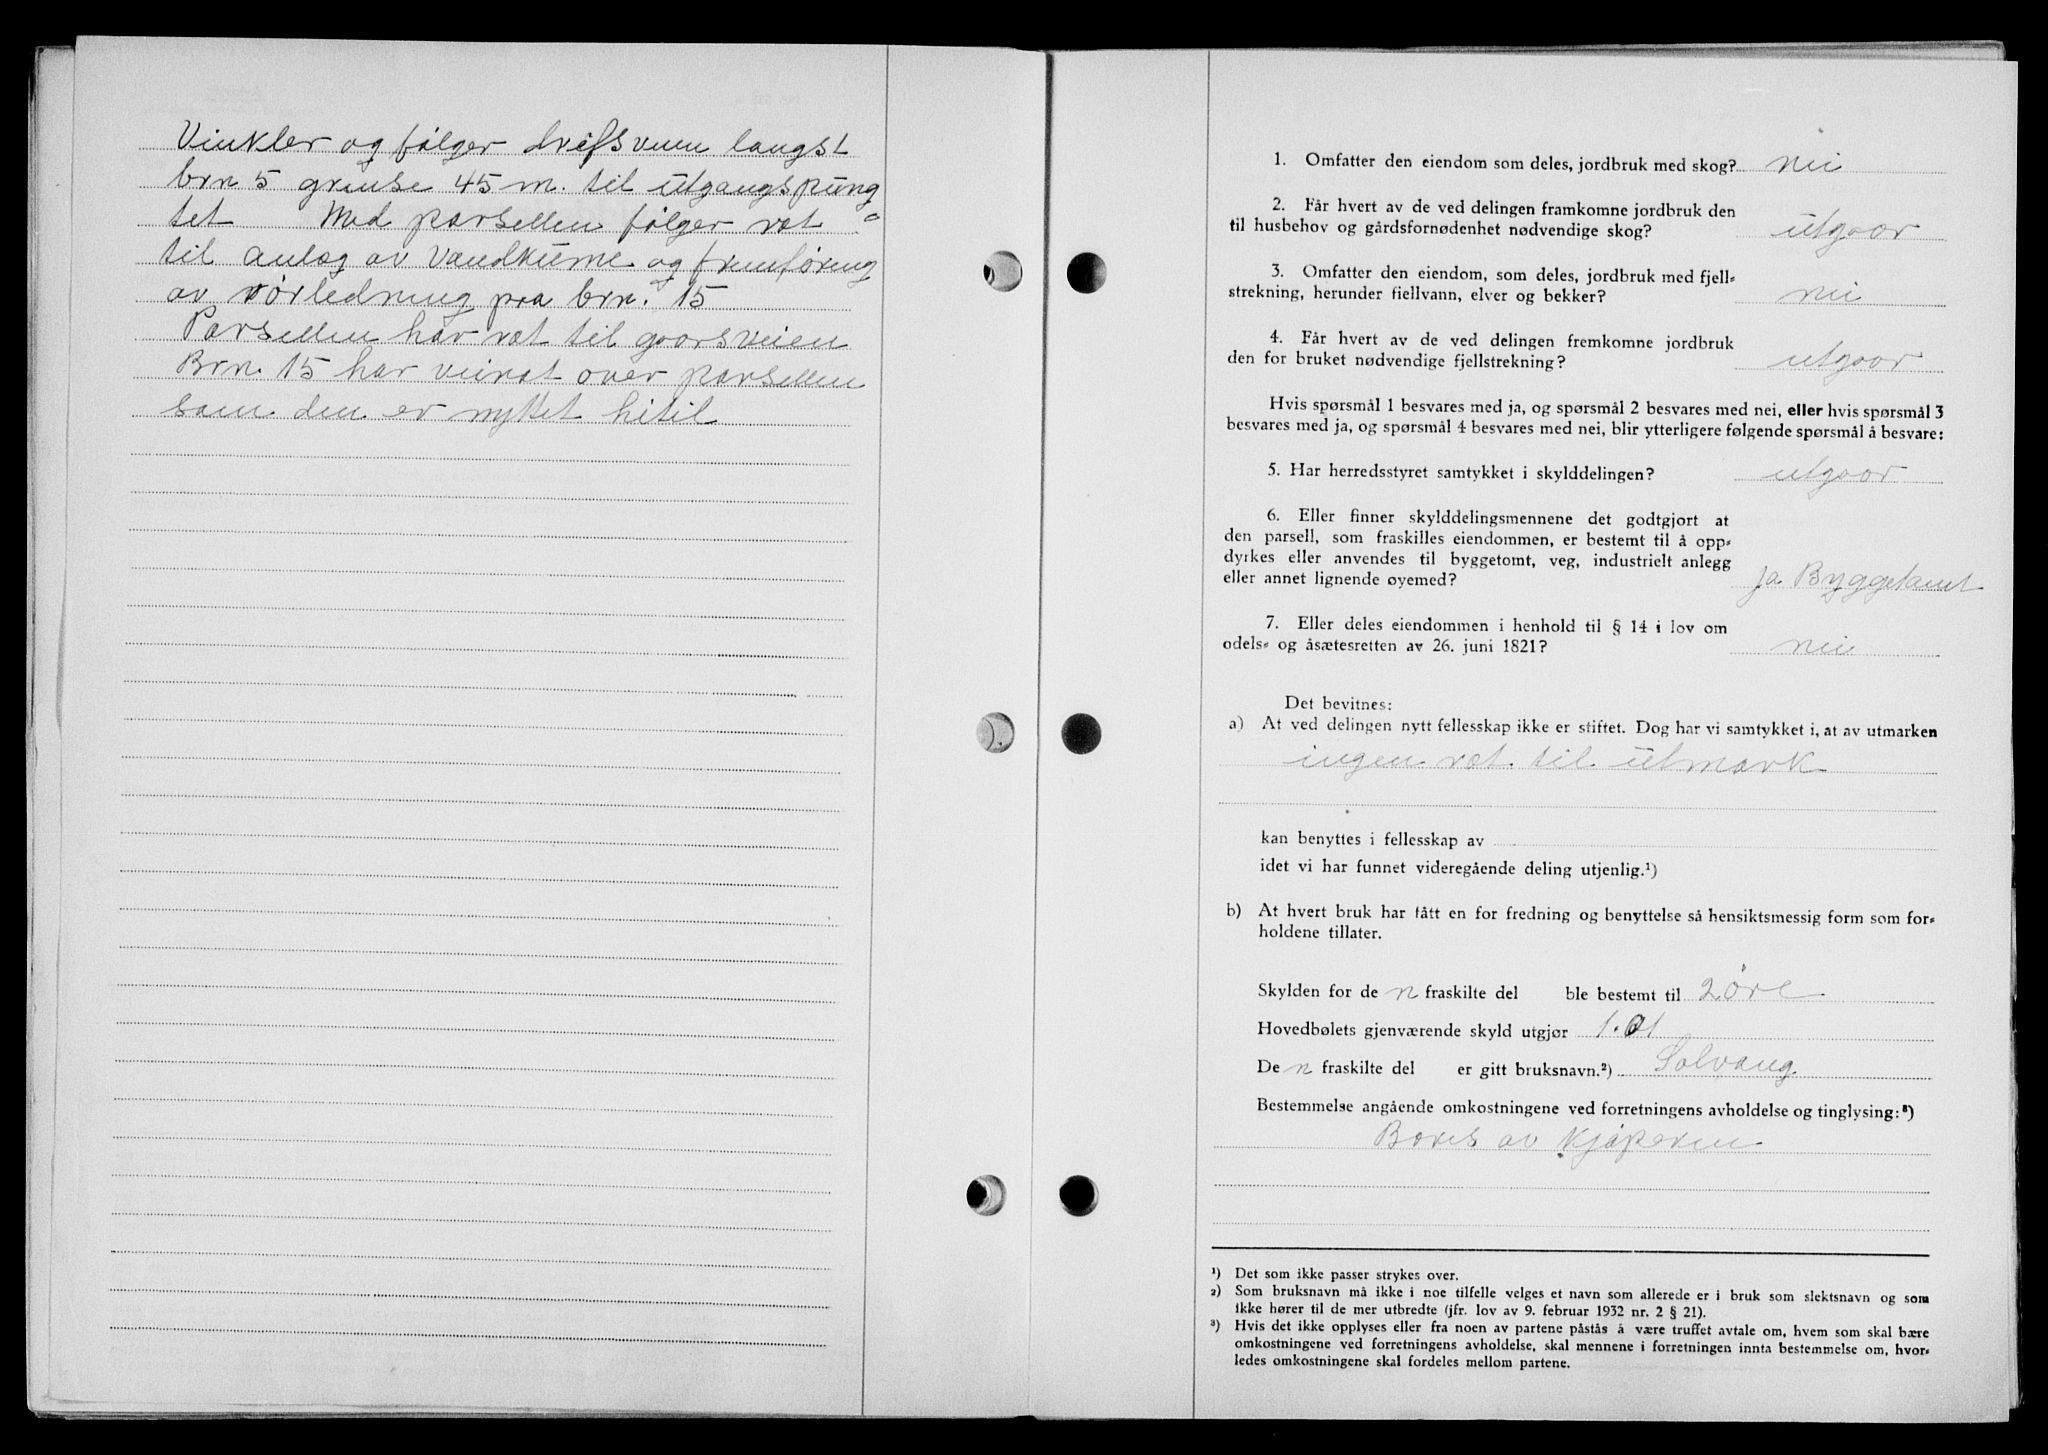 Vinkler og følger drifsveien langst
brn 5 grense 45 m. til utgangspung
tet Med parsellen følger ret
til anlæg av Vandkume og fremføring
av rørledning paa brn. 15
Parsellen har ret til gaarsveien
Brn. 15 har veiret over parsellen
som den er nyttet hitil
1. Omfatter den eiendom som deles, jordbruk med skog? nei
2. Får hvert av de ved delingen framkomne jordbruk den
til husbehov og gårdsfornødenhet nødvendige skog? utgaar
3. Omfatter den eiendom, som deles, jordbruk med fjell-
strekning, herunder fiellvann, elver og bekker? nei
4. Får hvert av de ved delingen fremkomne jordbruk
den for bruket nødvendige fjellstrekning? utgaar
Hvis spørsmål 1 besvares med ja, og spørsmål 2 besvares med nei, eller hvis spørsmål 3
besvares med ja, og spørsmål 4 besvares med nei, blir ytterligere følgende spørsmål å besvare:
5. Har herredsstyret samtykket i skylddelingen? utgaar
6. Eller finner skylddelingsmennene det godtgjort at
den parsell, som fraskilles eiendommen, er bestemt til å opp-
dyrkes eller anvendes til byggetomt, veg, industrielt anlegg
eller annet lignende øyemed? ja Byggetomt
7. Eller deles eiendommen i henhold til § 14 i lov om
odels- og åsætesretten av 26. juni 1821? nei
Det bevitnes:
a) At ved delingen nytt fellesskap ikke er stiftet. Dog har vi samtykket i, at av utmarken
ingen ret til utmark
kan benyttes i fellesskap av
idet vi har funnet videregående deling utjenlig.¹)
b) At hvert bruk har fått en for fredning og benyttelse så hensiktsmessig form som for-
holdene tillater.
Skylden for de n fraskilte del ble bestemt til 2 øre
Hovedbølets gjenværende skyld utgjør 1.01
De n fraskilte del er gitt bruksnavn.²) Solvang
Bestemmelse angående omkostningene ved forretningens avholdelse og tinglysing:³)
Bæres av Kjøperen
¹) Det som ikke passer strykes over.
²) Som bruksnavn må ikke i noe tilfelle velges et navn som allerede er i bruk som slektsnavn og som
ikke hører til de mer utbredte (jfr. lov av 9. februar 1932 nr. 2 § 21).
³) Hvis det ikke opplyses eller fra noen av partene påstås å være truffet avtale om, hvem som skal bære
omkostningene ved forretningens avholdelse, skal mennene i forretningen innta bestemmelse om, hvor-
ledes omkostningene skal fordeles mellom partene.